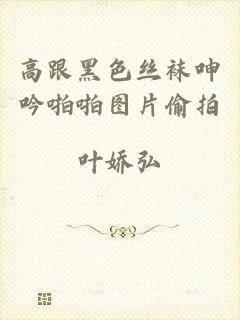 高跟黑色丝袜呻
吟啪啪图片偷拍
叶娇弘